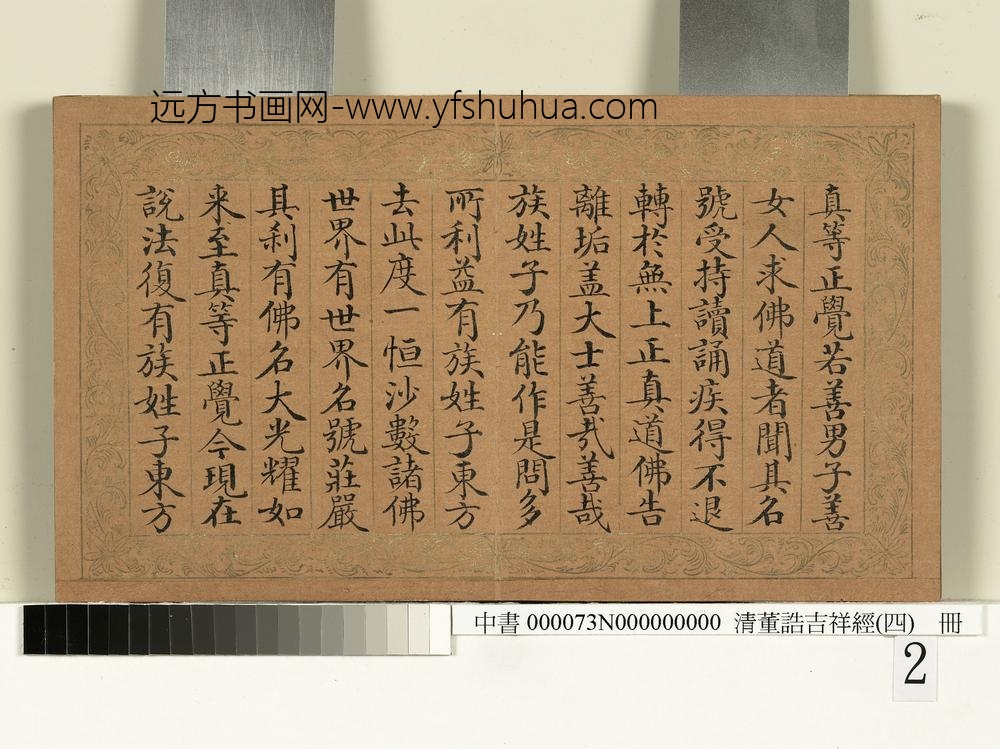 远方书画网-www.yfshuhua.com
真等正覺若善男子善
女人求佛道者聞其名
號受持讀誦疾得不退
轉於無上正真道佛告
離垢盖大士善哉善哉
族姓子乃能作是問多
所利益有族姓子東方
去此度一恒沙數諸佛
世界有世界名號莊嚴
具刹有佛名大光耀如
来至真等正覺今現在
說法復有族姓子東方
中書 000073N000000000 清董誥吉祥經(四) 冊
2